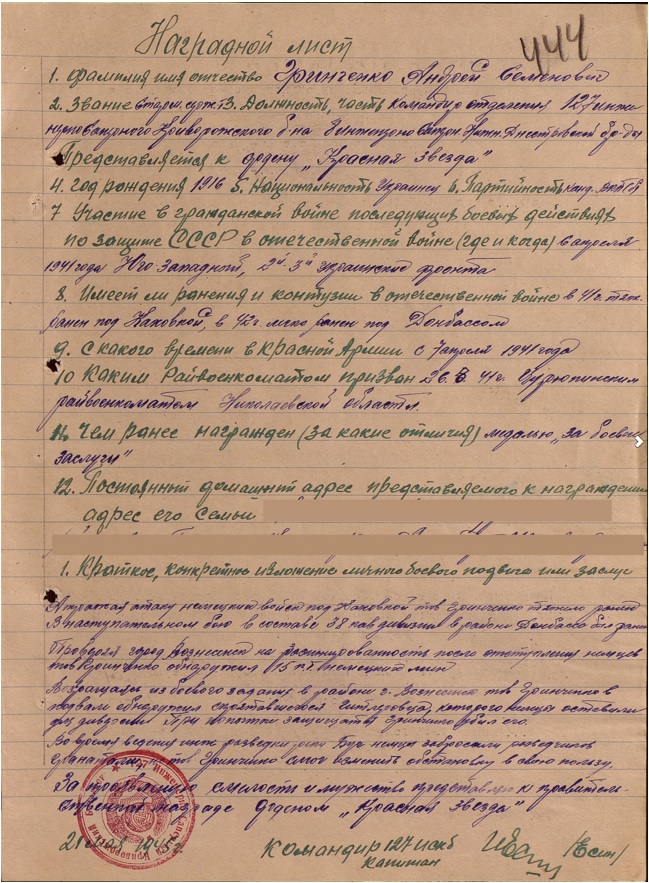 Наградной лист
444
1. Фамилия имя отчество Гринченко Андрей Семенович
2. Звание 3. Должность, часть командир отделения 127 инже
Криворожского б-на Днестровской бр-ды
Представляется к ордену „Красная Звезда"
4. год рождения 1916 5. Национальность Украинец 6. Партийность канд. ВКП(б)
7 Участие в гражданской войне последующих боевых действиях
по защите СССР в отечественной войне (где и когда) с апреля
1941 года Юго-Западный, 2й 3й Украинские фронта
8. Имеет ли ранения и контузии в отечественной войне в 41 г. тяж.
ранен под Каховкой, в 42 г. легко ранен под Донбассом
9. С какого времени в Красной Армии с 7 апреля 1941 года
10 Каким Райвоенкоматом призван 41 г. Цурюпинским
райвоенкоматом Николаевской области.
11. Чем ранее награжден (за какие отличия) медалью „за боевые
заслуги"
12. Постоянный домашний адрес представляемого к награждению
адрес его семьи
1. Краткое, конкретное изложение личного боевого подвига или заслуг
Отражая атаку немецких войск под Каховкой тов Гринченко тяжело ранен
В наступательном бою в составе 38 кав дивизии в районе Донбасса был ранен
Проверяя город Вознесенск на разминированность после отступления немцев
тов Гринченко обнаружил 15 немецких мин
Возращаясь из боевого задания в районе г. Вознесенск тов Гринченко в
подвале обнаружил спрятавшегося гитлеровца, которого немцы оставили
для диверсии При попытке защищаться Гринченко убил его.
Во время ведения инж разведки реки Буг немцы забросали разведчиков
гранатами, тов Гринченко смог изменить обстановку в свою пользу.
За проявленную смелость и мужество представляю к правитель-
ственной награде орденом „Красная звезда"
21 мая 1945
Командир 127 исб
капитан /Есин/